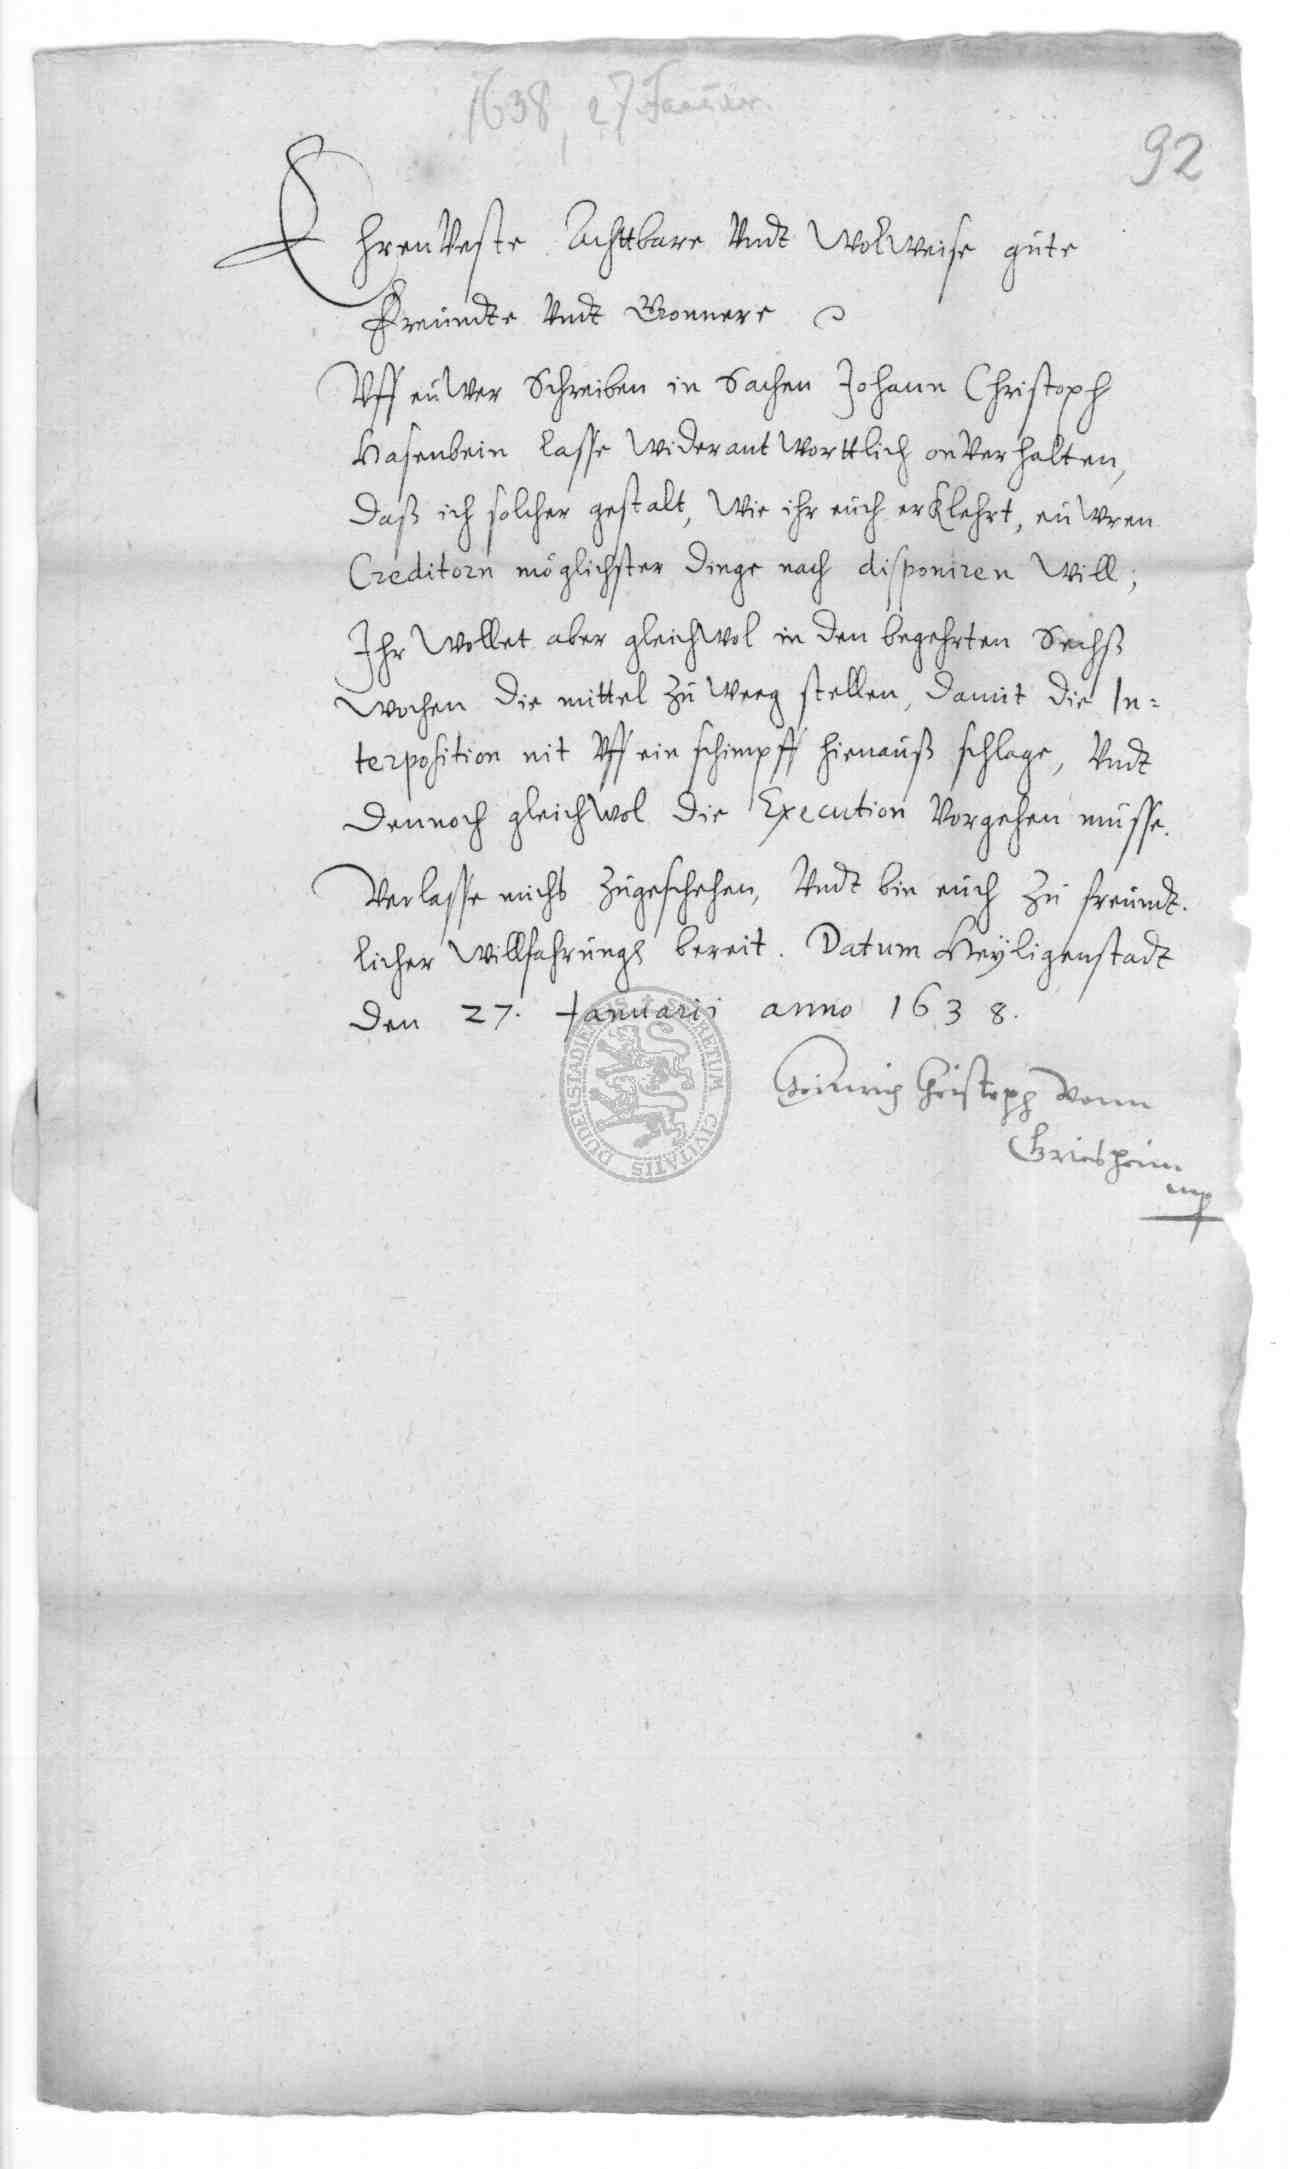 1638, 27 Januar.
92
EhrenVeste Achttbare Vndt WolWeise gute
Freundte Vndt Gonnere
Vff euWer Schreiben in Sachen Johann Christoph
Hasenbein lasse WiderantWorttlich onVerhalten,
daß ich solcher gestalt, Wie ihr euch erKlehrt, euWren
Creditorn möglichster dinge nach disponiren Will;
Ihr Wollet aber gleichWol in den begehrten Sechß
Wochen die mittel zu Weeg stellen, damit die In=
terposition nit Vff ein schimpff hienauß schlage, Vndt
dennoch gleichWol die Execution Vorgehen müsse.
Verlasse michs zugeschehen, Vndt bin euch zu freundt.
licher Willfahrung bereit. Datum Heyligenstadt
den 27. Januarii anno 1638.
SECRETUM CIVITATIS DUDERSTADIENSIS
Heinrich Christoph Vonn
Griesheim
mp